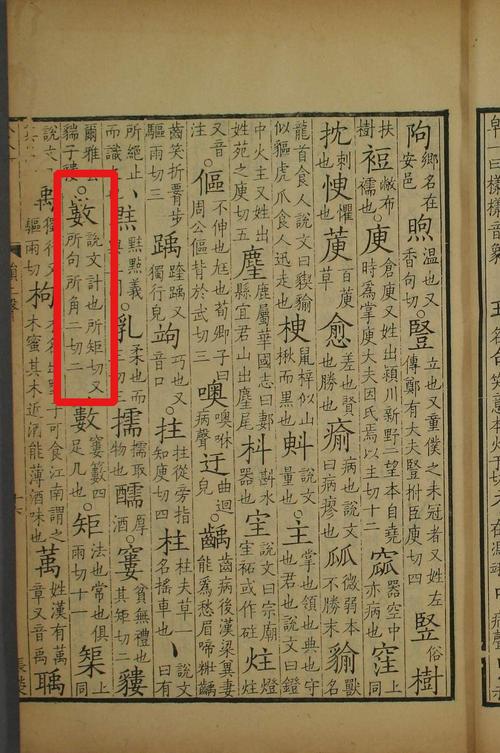 鄉名在安邑 煦 溫也又香句切 ○豎 立也又童僕之未冠者又姓左傳鄭有大夫豎拊臣庾切四 竪 俗 樹
扶樹 裋 敝布襦也 ○庾 倉庾又姓出潁川新野二望本自堯時爲掌庾大夫因氏焉以主切十二 窳 器空中亦病也 窪 上同
刺也 㥚 懼也 萸 百萸草 愈 差也賢也勝也 瘉 病也說文曰病瘳也 㼌 微弱本不勝末 貐 獸名
龍首食人又說文曰猰貐似貙虎爪食人迅走也 楰 鼠梓似山楸而黑也 㪺 說文量也 ○主 掌也領也典也守也君也說文曰鐙
中火主又姓出姓苑之庾切五 麈 鹿屬華國志曰郪縣宜君山出麈尾 枓 斟水器也 宔 說文曰宗廟宔祏或作砫 炷 燈炷
注又音 ○傴 不伸也尪也荀卿子曰周公傴背於武切三 噢 噢咻病聲 迂 曲迴皃 ○齲 齒病後漢梁冀妻能爲愁眉啼粧齲
齒笑折腰步驅雨切三 踽 踽又獨行皃 竘 巧也又音口 ○拄 拄從旁指知庾切四 柱 柱夫草一名搖車也 丶 說文曰有
所絕止丶而識 點黈義 ○乳 柔也而 擩 擩取物也 醹 厚酒 ○寠 貧無禮也其矩切二 貗
爾雅云貒子貗 ○數 說文計也所矩切又所句所角二切二 籔 窶籔四足几也 ○矩 法也常也俱雨切十一 榘 上同
說文 獨行又驅雨切 枸 木名出蜀子可食江南謂之木蜜其木近酒能薄酒味也 萭 姓漢有萭章又音禹 聥